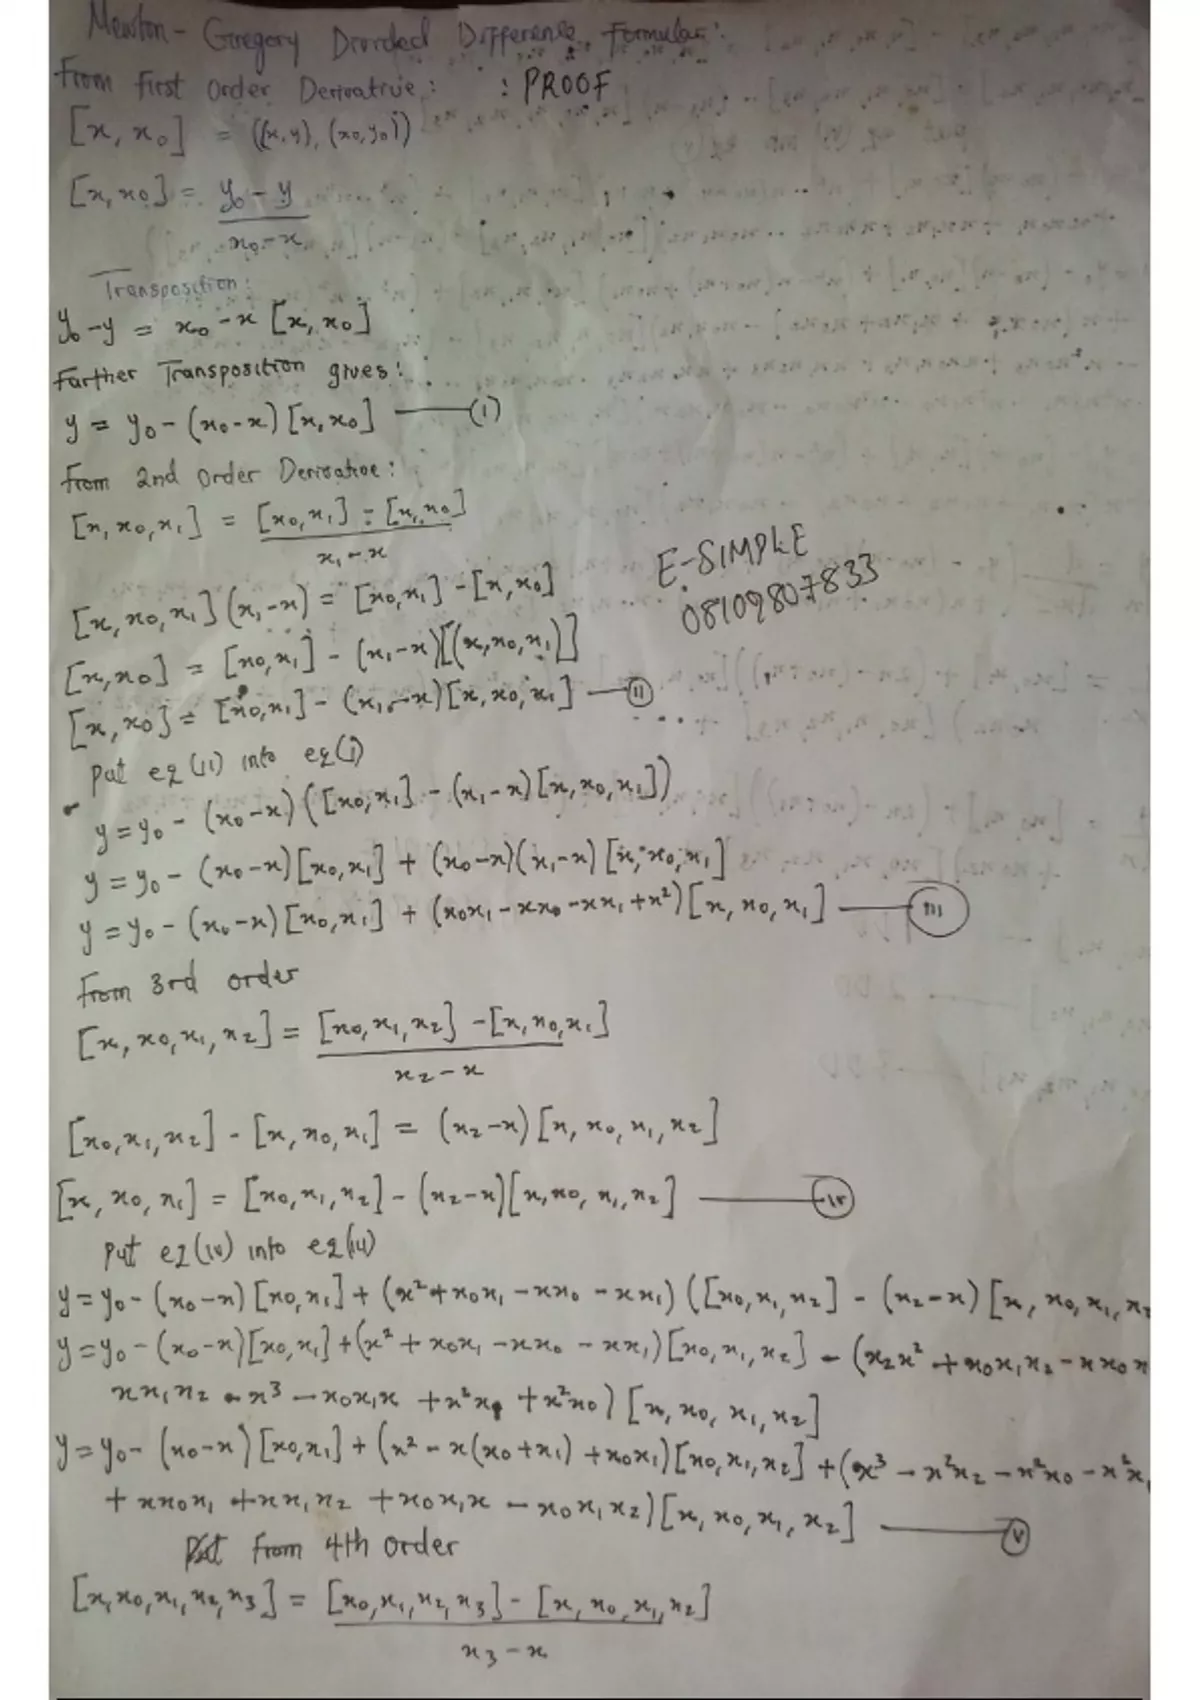 Newton-Gregory Divided Difference Formular:
From First Order Derivative: : PROOF
[x, x₀] = ((x,y), (x₀,y₀))
[x, x₀] = (y₀ - y)/(x₀ - x)
Transposition:
y₀ - y = x₀ - x [x, x₀]
Farther Transposition gives:
y = y₀ - (x₀ - x) [x, x₀] —— (i)
From 2nd Order Derivative:
[x, x₀, x₁] = ([x₀, x₁] - [x, x₀])/(x₁ - x)
E-SIMPLE
08109807833
[x, x₀, x₁] (x₁ - x) = [x₀, x₁] - [x, x₀]
[x, x₀] = [x₀, x₁] - (x₁ - x)[(x, x₀, x₁)]
[x, x₀] = [x₀, x₁] - (x₁ - x)[x, x₀, x₁] —— (ii)
Put eq (ii) into eq (i)
y = y₀ - (x₀ - x) ([x₀, x₁] - (x₁ - x) [x, x₀, x₁])
y = y₀ - (x₀ - x) [x₀, x₁] + (x₀ - x)(x₁ - x) [x, x₀, x₁]
y = y₀ - (x₀ - x) [x₀, x₁] + (x₀x₁ - xx₀ - xx₁ + x²) [x, x₀, x₁] —— (iii)
From 3rd order
[x, x₀, x₁, x₂] = ([x₀, x₁, x₂] - [x, x₀, x₁])/(x₂ - x)
[x₀, x₁, x₂] - [x, x₀, x₁] = (x₂ - x) [x, x₀, x₁, x₂]
[x, x₀, x₁] = [x₀, x₁, x₂] - (x₂ - x)[x, x₀, x₁, x₂] —— (iv)
Put eq (iv) into eq (iii)
y = y₀ - (x₀ - x) [x₀, x₁] + (x² + x₀x₁ - xx₀ - xx₁) ([x₀, x₁, x₂] - (x₂ - x) [x, x₀, x₁, x₂
y = y₀ - (x₀ - x)[x₀, x₁] + (x² + x₀x₁ - xx₀ - xx₁) [x₀, x₁, x₂] - (x₂x² + x₀x₁x₂ - xx₀x
xx₁x₂ - x³ - x₀x₁x + x²x₁ + x²x₀) [x, x₀, x₁, x₂]
y = y₀ - (x₀ - x) [x₀, x₁] + (x² - x(x₀ + x₁) + x₀x₁) [x₀, x₁, x₂] + (x³ - x²x₂ - x²x₀ - x²x₁
+ xx₀x₁ + xx₁x₂ + x₀x₁x - x₀x₁x₂) [x, x₀, x₁, x₂] —— (v)
From 4th order
[x, x₀, x₁, x₂, x₃] = ([x₀, x₁, x₂, x₃] - [x, x₀, x₁, x₂])/(x₃ - x)